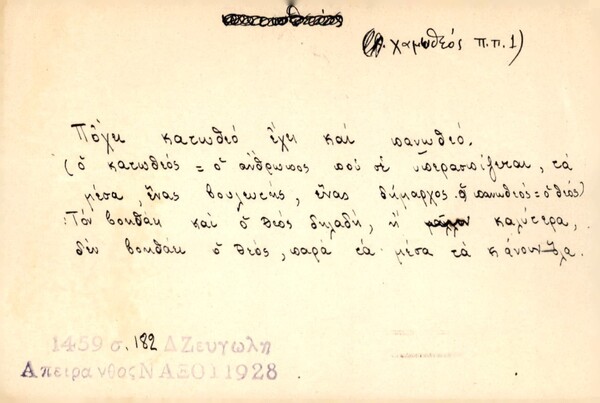 (βλ. χαμωθεός π.π.1)
Πὄχει κατωθεό ἔχει καί πανωθεό.
(ὁ κατωθεός = ὁ ἄνθρωπος πού σέ ὑπερασπίζεται, τά
μέσα, ἕνας βουλευτής, ἕνας δήμαρχος. ὁ πανωθεός = ὁ θεός)
: Τόν βοηθάει καί ὁ θεός δηλαδή, ἤ καλύτερα,
δέν βοηθάει ὁ θεός, παρά τά μέσα τά κάνουν ὅλα.
1459 σ. 182 Δ Ζευγωλη
Απειρανθος ΝΑΞΟΥ 1928